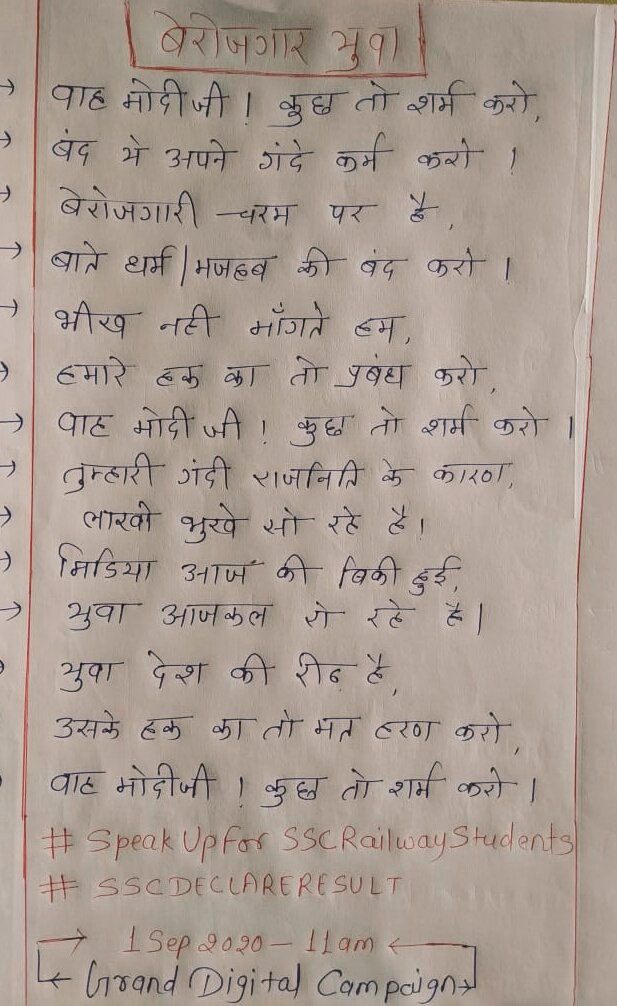 बेरोजगार युवा
वाह मोदी जी ! कुछ तो शर्म करो,
बंद ये अपने गंदे कर्म करो ।
बेरोजगारी चरम पर है,
बाते धर्म/मजहब की बंद करो ।
भीख नही माँगते हम,
हमारे हक का तो प्रबंध करो,
वाह मोदी जी ! कुछ तो शर्म करो ।
तुम्हारी गंदी राजनिति के कारण,
लाखो भुखे सो रहे है।
मिडिया आज की बिकी हुई,
युवा आजकल रो रहे है।
युवा देश की रीढ है,
उसके हक का तो मत हरण करो,
वाह मोदीजी ! कुछ तो शर्म करो ।
# SpeakUpForSSCRailwayStudents
# SSCDECLARERESULT
→ 1 Sep 2020 - 11am ←
← Grand Digital Campaign →